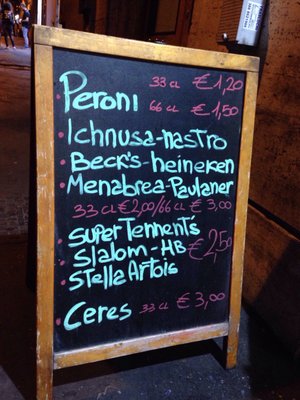 Peroni 33 CL €1,20
66 CL €1,50
• Ichnusa-nastro
• Beck's-heineken
• Menabrea-Paulaner
33 CL €2,00/66 CL € 3,00
• super Tennent's
• Slalom-HB €2,50
• Stella Artois
• Ceres 33 CL €3,00